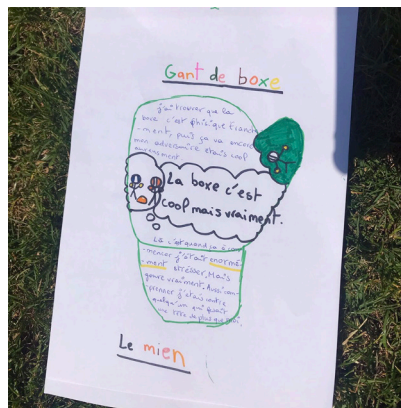 Gant de boxe
j'ai trouver que la
boxe c'est phisique franche
-ment, puis ça va encore
mon adversaire étais cool
La boxe c'est
cool mais vraiment.
Là c'est quand ça a com
-mencer j'étais énormé
-ment stresser. Mais
genre vraiment. Aussi com
-prener j'étais contre
quelqu'un qui faisait
une tête de plus que moi.
Le mien